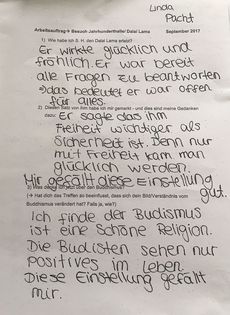 Linda
Pacht
Arbeitsauftrag→ Besuch Jahrhunderthalle/ Dalai Lama September 2017
1) Wie habe ich S. H. den Dalai Lama erlebt?
Er wirkte glücklich und
fröhlich. Er war bereit
alle Fragen zu beantworten
→ das bedeutet er war offen
für alles.
2) Diesen Satz von ihm habe ich mir gemerkt - und dies sind meine Gedanken
dazu: Er sagte das ihm
Freiheit wichtiger als
Sicherheit ist. Denn nur
mit Freiheit kann man
glücklich werden.
Mir gefällt diese Einstellung
gut.
3) Was denke ich jetzt über den Buddhismus?
(→ Hat dich das Treffen so beeinflusst, dass sich dein Bild/Verständnis vom
Buddhismus verändert hat? Falls ja, wie?)
Ich finde der Budismus
ist eine schöne Religion.
Die Budisten sehen nur
positives im Leben.
Diese Einstellung gefällt
mir.